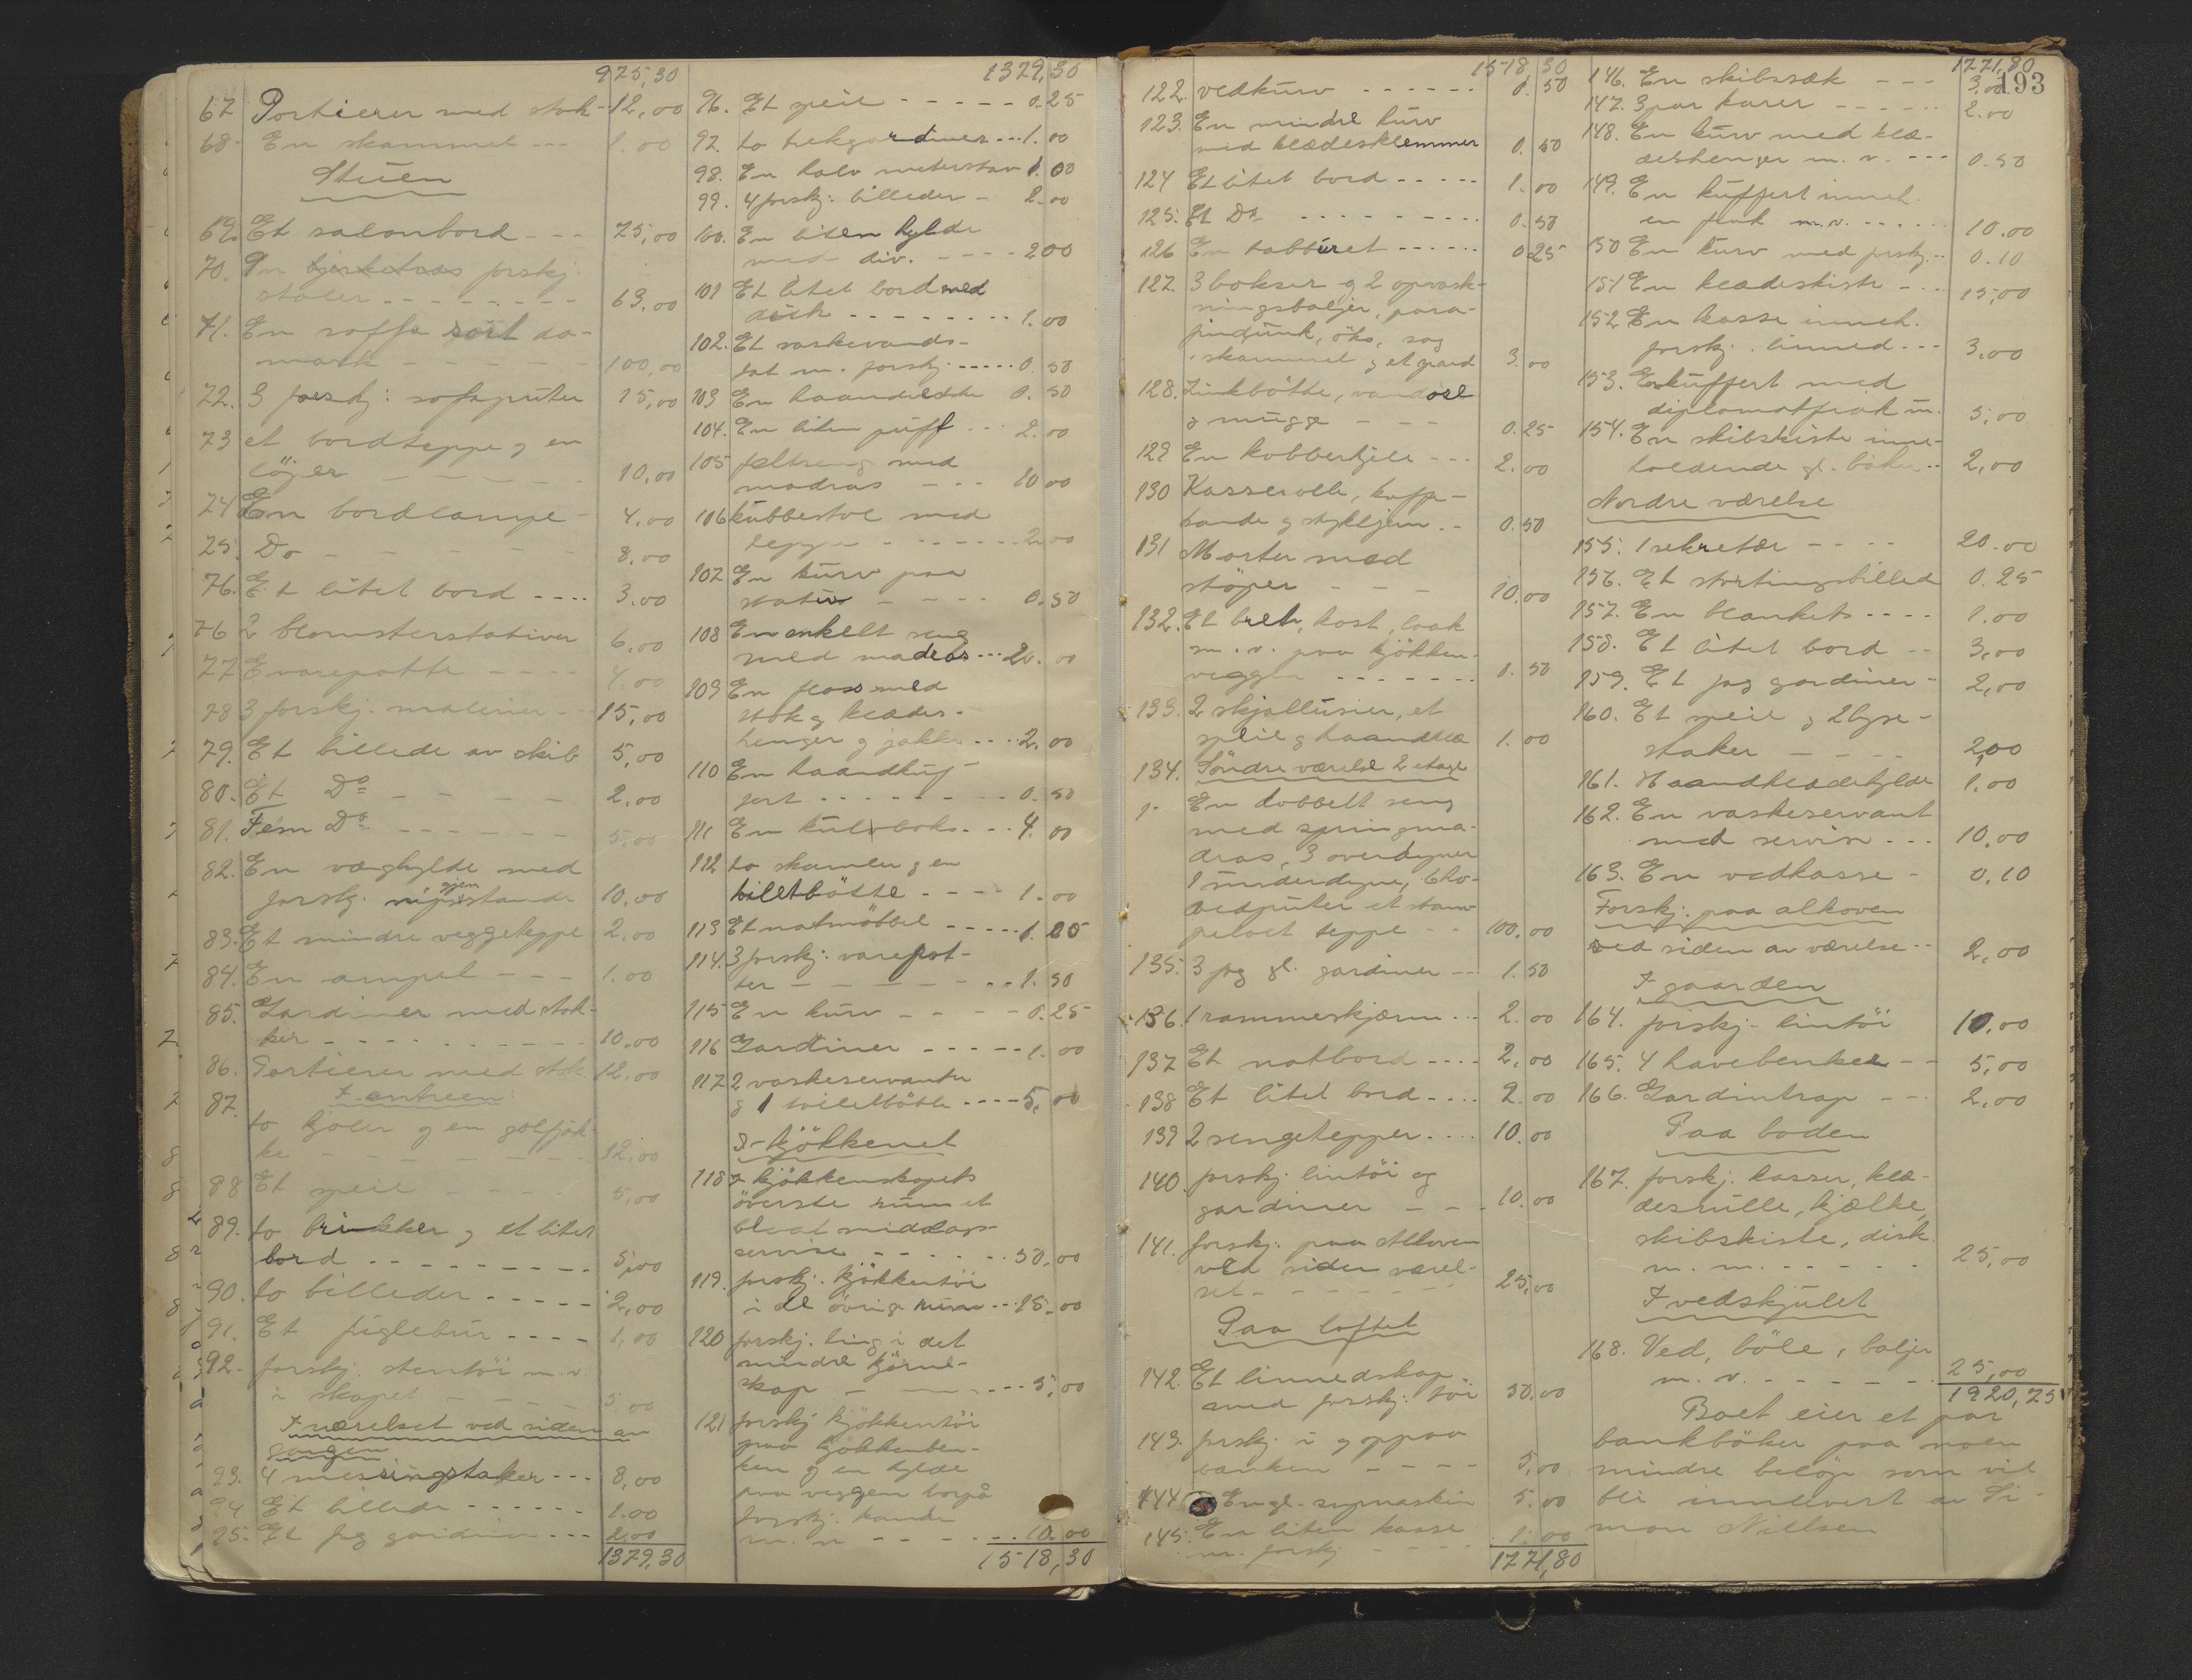 975,30
67 Portierer med stok- 12,00
68. En skammel --- 1.00
Stuen
69. Et salonbord --- 75,00
70. forskj.
stoler -------- 63,00
71. En soffa sort da-
mask - - - - 100,00
72. 3 forskj: sofaputer 15,00
73 et bordteppe og en
löper - - - - - 10,00
74 En bordlampe - 4,00
75. Do - - - - - - 8,00
76. Et litet bord ---- 3.00
76 2 blomsterstativer 6,00
77 Evarepotte ---- 4.00
78 3 forskj. malerier -- 15,00
79. Et billede av skib 5,00
80. Et Do - - - - - 2,00
81. Fem Do ------ 5,00
82. En væghylde med
forskj. nips gjen stande 10,00
83. Et mindre veggeteppe 2,00
84. En ampel --- 1.00
85. Gardiner med stok-
ker ---------- 10,00
86. Portierer med stok. 12,00
I entreen
87. to kjoler og en golfjak-
ke -------- 12,00
88 Et speil ---- 5,00
89. to brikker og et litet
bord --------- 5,00
90. to billeder ----- 2,00
91. Et fuglebur ---- 1,00
92. forskj. stentöi m.v.
i skapet ---- 5.00
I værelset ved siden av
gangen
93. 4 messingstaker --- 8,00
94 Et billede ------ 1.00
95. Et fag gardiner --- 2,00
1379,30
1379,30
96. Et speil ----- 0.25
97. to trekgardiner --- 1.00
98. En halv meterstav 1.00
99. 4 forskj: billeder - 2.00
100. En liten hylde
med div. ---- 2 00
101 Et litet bord med
disk -------- 1.00
102. Et vaskevands-
fat m. forskj. ----- 0.50
103 En haandveske 0.50
104. En liten puff --- 2.00
105 feltseng med
madras --- 10 00
106 kubbestol med
teppe ------- 2.00
107 En kurv paa
stativ ---- 0.50
108 En enkelt seng
med madras --- 20.00
109 En med
stok og klædes-
henger og jakke ---- 2.00
110 En haandkuf-
fert --------- 0.50
111 En kulboks --- 4.00
112 to skamler og en
toiletbötte ---- 1.00
113 Et natmöbbel ----- 1.25
114. 3 forskj: varepot-
ter ------- 1.50
115 En kurv ---- 0.25
116 Gardiner ----- 1.00
117 2 vaskeservanter
og 1 toiletbötte ---- 5.00
I kjökkenet
118 I kjökkenskapets
överste rum et
blaat middags-
servise ------ 50.00
119. forskj. kjökkentöi
i de övrige rum -- 15.00
120 forskj. ting i det
mindre hjörne-
skap ------- 5,00
121 forskj kjökkentöi
paa kjökkenben-
ken og en hylde
paa veggen borpå
forskj. kander
m. v ------ 10.00
1518,30
1518 30
122. vedkurv ------ 0.50
123. En mindre kurv
med klædesklemmer 0.50
124 Et litet bord ----- 1.00
125. Et Do --------- 0.50
126 En tabburet ------ 0.25
127. 3 bokser og 2 opvask-
ningsbaljer, para-
findunk, öks, sag
skammel og et spand 3.00
128. Zinkbötte, vandøse
og mugge --- 0.25
129 En kobberkjele --- 2.00
130 Kasserolle, kaffe-
kande og strykejern -- 0.50
131 Morter med
stöper --- 10.00
132. Et bret, kost, laak
m. v. paa kjökken-
veggen ------- 0.50
133. 2 skjallusier, et
speil og haandklæ 1.00
134. Söndre værelse 2 etage
1- En dobbelt seng
med springma-
dras, 3 overdyner
1 underdyne, 6 ho-
vedputer et stam-
teppe -- 100.00
135. 3 fag gl. gardiner -- 1.50
136. 1 rammeskjærm --- 2.00
137 Et natbord ---- 2,00
138 Et litet bord ---- 2.00
139 2 sengetepper ---- 10.00
140. forskj. lintöi og
gardiner --- 10.00
141. forskj. paa Alkoven
ved siden værel-
set -------- 25,00
Paa loftet
142. Et linnedskap
med forskj. töi 50,00
143. forskj. i og oppaa
banken ---- 5,00
144 En gl. symaskin 5.00
145. En liten kasse
m. forskj ---- 1.00
1771,80
1771,80
193
146. En skibssæk --- 3,00
147. 3 par karer ------ 2.00
148. En kurv med klæ-
deshenger m. v. --- 0.50
149. En kuffert inneh.
en frak m.v. ----- 10.00
150 En kurv med forskj. -- 0.10
151 En klædeskiste --- 15,00
152 En kasse inneh.
forskj. linned --- 3,00
153. En kuffert med
diplomatfrak m. 5,00
154. En skibskiste inne-
holdende gl. böker -- 2,00
Nordre værelse
155. 1 sekretær ---- 20.00
156. Et stortingsbilled 0.25
157. En blankets ---- 1.00
158. Et litet bord -- 3,00
159. Et fag gardiner - 2,00
160. Et speil og 2 lyse-
staker ---- 2,00
161. Haandklædehylde 1.00
162. En vaskeservant
med servise --- 10,00
163. En vedkasse - 0,10
Forskj. paa alkoven
ved siden av værelse -- 2,00
I gaarden
164. forskj. lintöi 10,00
165. 4 havebenker -- 5,00
166. Gardintrap --- 2,00
Paa boden
167. forskj. kasser, klæ-
desrulle, kjælke,
skibskiste, disk
m. m. ----- 25,00
I vedskjulet
168. Ved, böle, baljer
m. v. ------ 25,00
1920,75
Boet eier et par
bankböker paa noen
mindre belöp som vil
bli innlevert av Si-
mon Nilsen